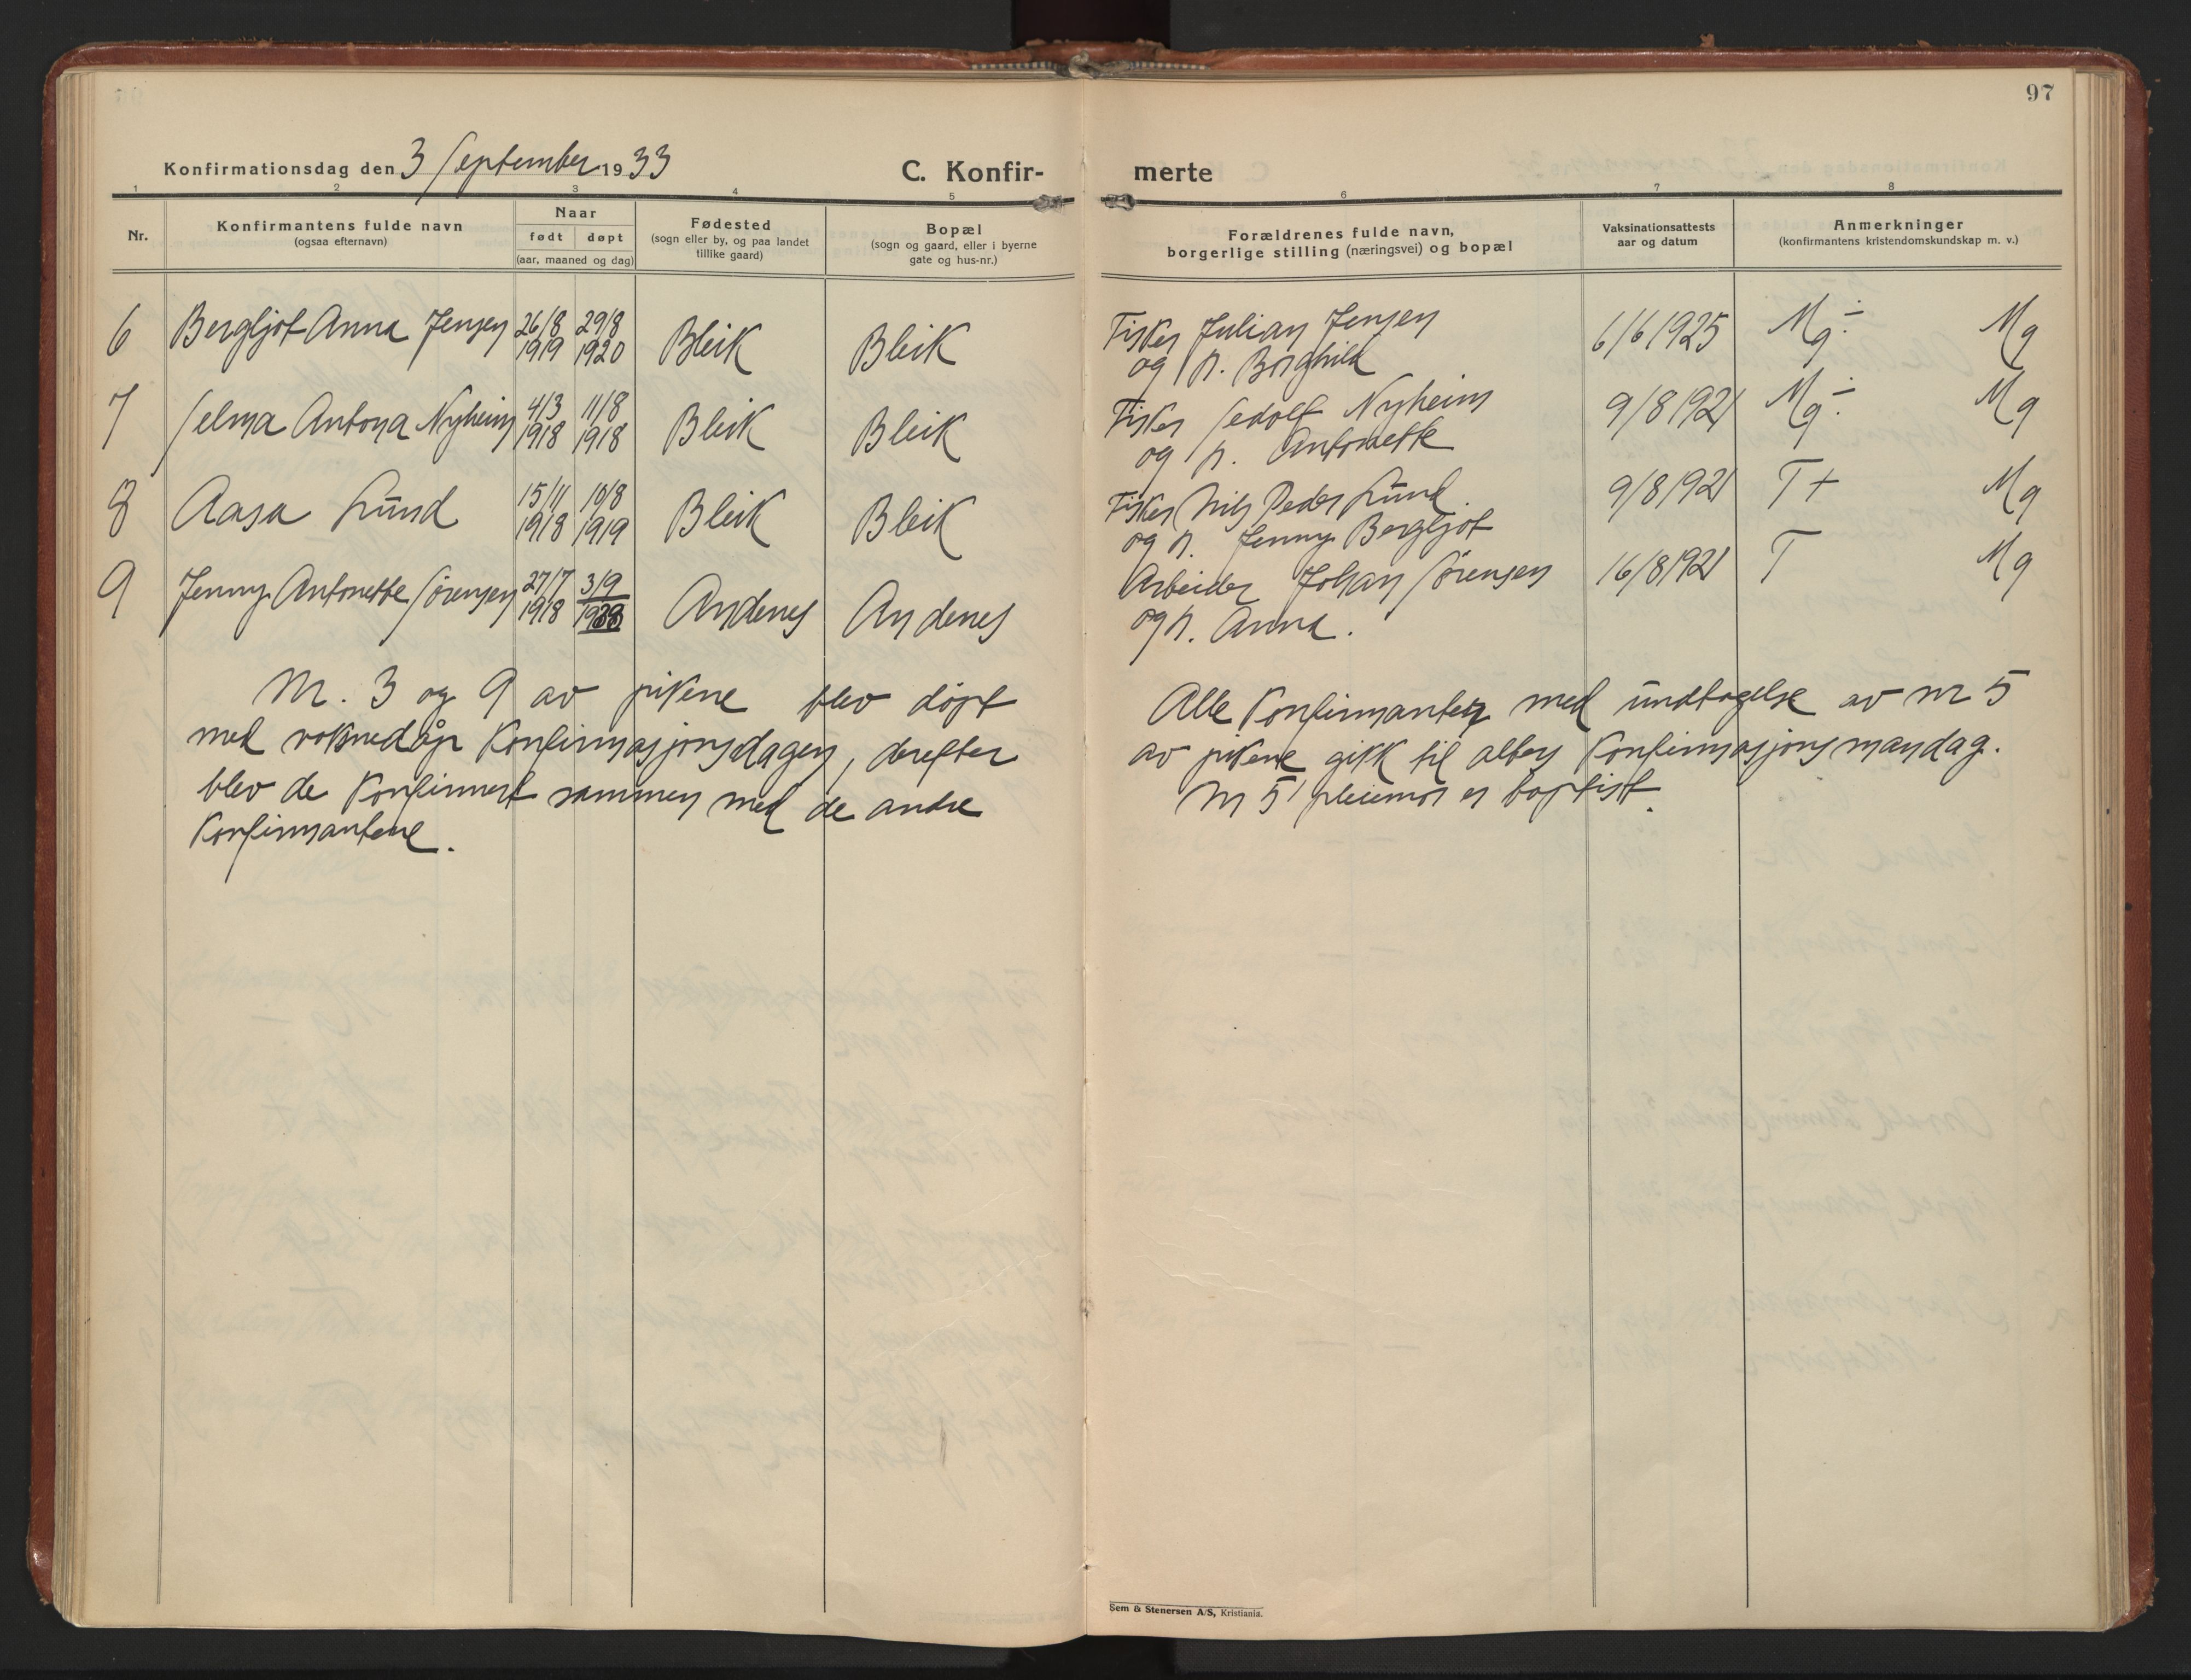 97
Konfirmationsdag den 3 September 1933
C. Konfir- merte
1 2 3 4 5 6 7 8
Nr.
Konfirmantens fulde navn
(ogsaa efternavn)
Naar
født døpt
(aar, maaned og dag)
Fødested
(sogn eller by, og paa landet
tillike gaard)
Bopæl
(sogn og gaard, eller i byerne
gate og hus-nr.)
Forældrenes fulde navn,
borgerlige stilling (næringsvei) og bopæl
Vaksinationsattests
aar og datum
Anmerkninger
(konfirmantens kristendomskundskap m. v.)
6 Bergljot Anna Jensen 26/8 1919 29/8 1920 Bleik Bleik Fisker Julian Jensen 6/6 1925 Mg÷ Mg
og h. Borghild
7 Selma Antona Nyheim 4/3 1918 11/8 1918 Bleik Bleik Fisker Sedolf Nyheim 9/8 1921 Mg÷ Mg
og h. Antonette
8 Aasa Lund 15/11 1918 10/8 1919 Bleik Bleik Fisker Nils Peder Lund 9/8 1921 T+ Mg
og h. Jenny Bergljot
9 Jenny Antonette Sørensen 27/7 1918 3/9 1933 Andenes Andenes Arbeider Johan Sørensen 16/8 1921 T Mg
og h. Anna.
Nr. 3 og 9 av pikene blev døpt
med voksnedåp konfirmasjonsdagen, derefter
blev de konfirmert sammen med de andre
konfirmantene.
Alle konfirmanter med undtagelse av nr 5
av pikene gikk til alters konfirmasjonsmandag.
Nr 5's pleiemor er baptist.
Sem & Stenersen A/S, Kristiania.